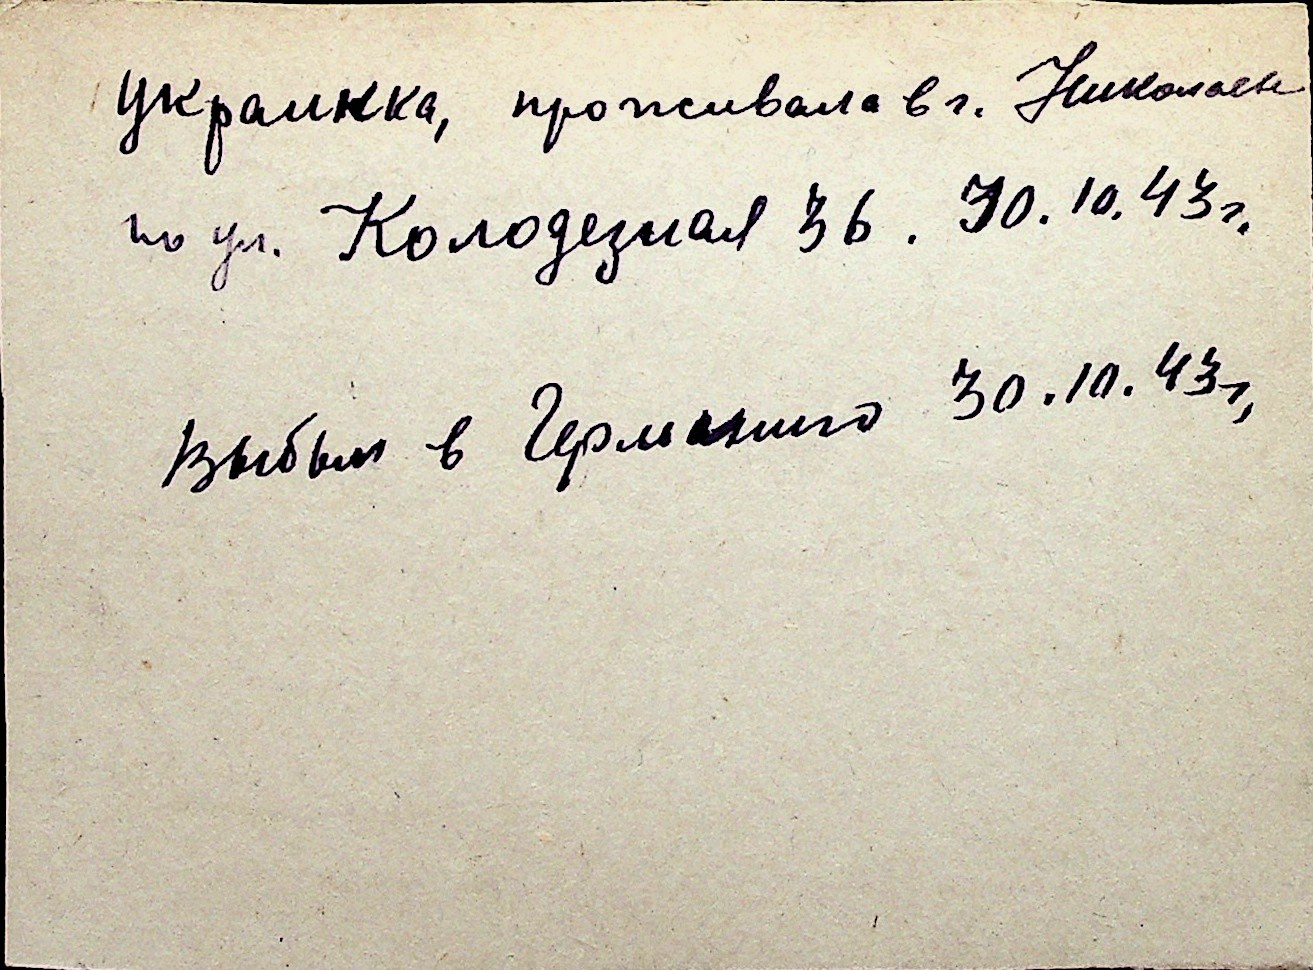 украинка, проживала в г. Николаев
по ул. Колодезная 36. 30.10.43г.
Выбыл в Германию 30.10.43г,